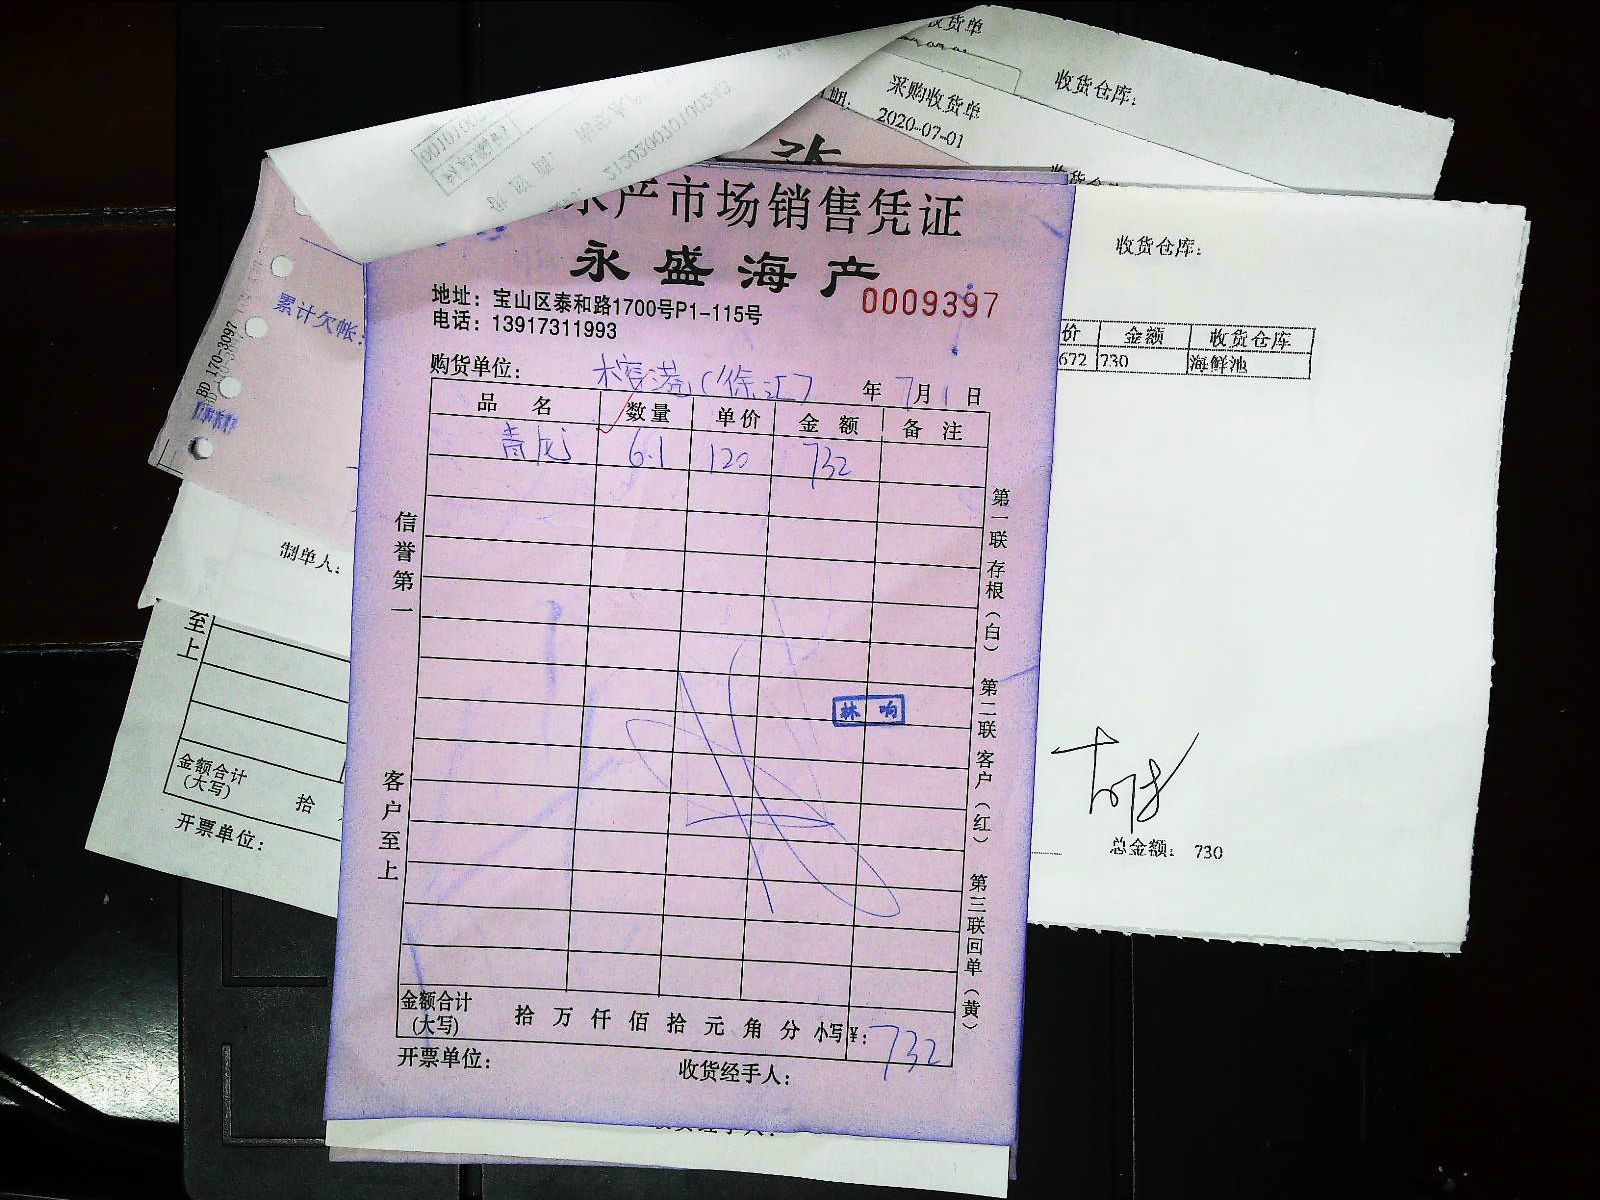 收货单
收货仓库:
采购收货单
2020-07-01
产市场销售凭证
永盛海产
0009397
地址：宝山区泰和路1700号P1-115号
电话：13917311993
购货单位： (徐汇) 年 7月1日
品名 数量 单价 金额 备注
青龙 6.1 120 732
信誉第一
客户至上
第一联存根（白） 第二联客户（红） 第三联回单（黄）
林响
金额合计(大写) 拾 万 仟 佰 拾 元 角 分 小写¥: 732
开票单位： 收货经手人：
累计欠帐：
BD 170-3097
制单人：
至上
金额合计
(大写) 拾
开票单位：
收货仓库:
价 金额 收货仓库
672 730 海鲜池
总金额: 730